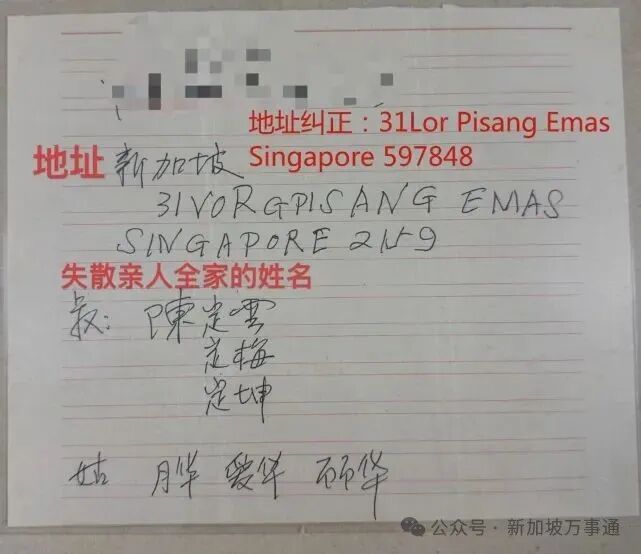 地址纠正：31Lor Pisang Emas
Singapore 597848
地址 新加坡
31VORGPISANG EMAS
SINGAPORE 2159
失散亲人全家的姓名
叔：陳定雲
定梅
定坤
姑 月华 爱华 顾华
公众号 · 新加坡万事通